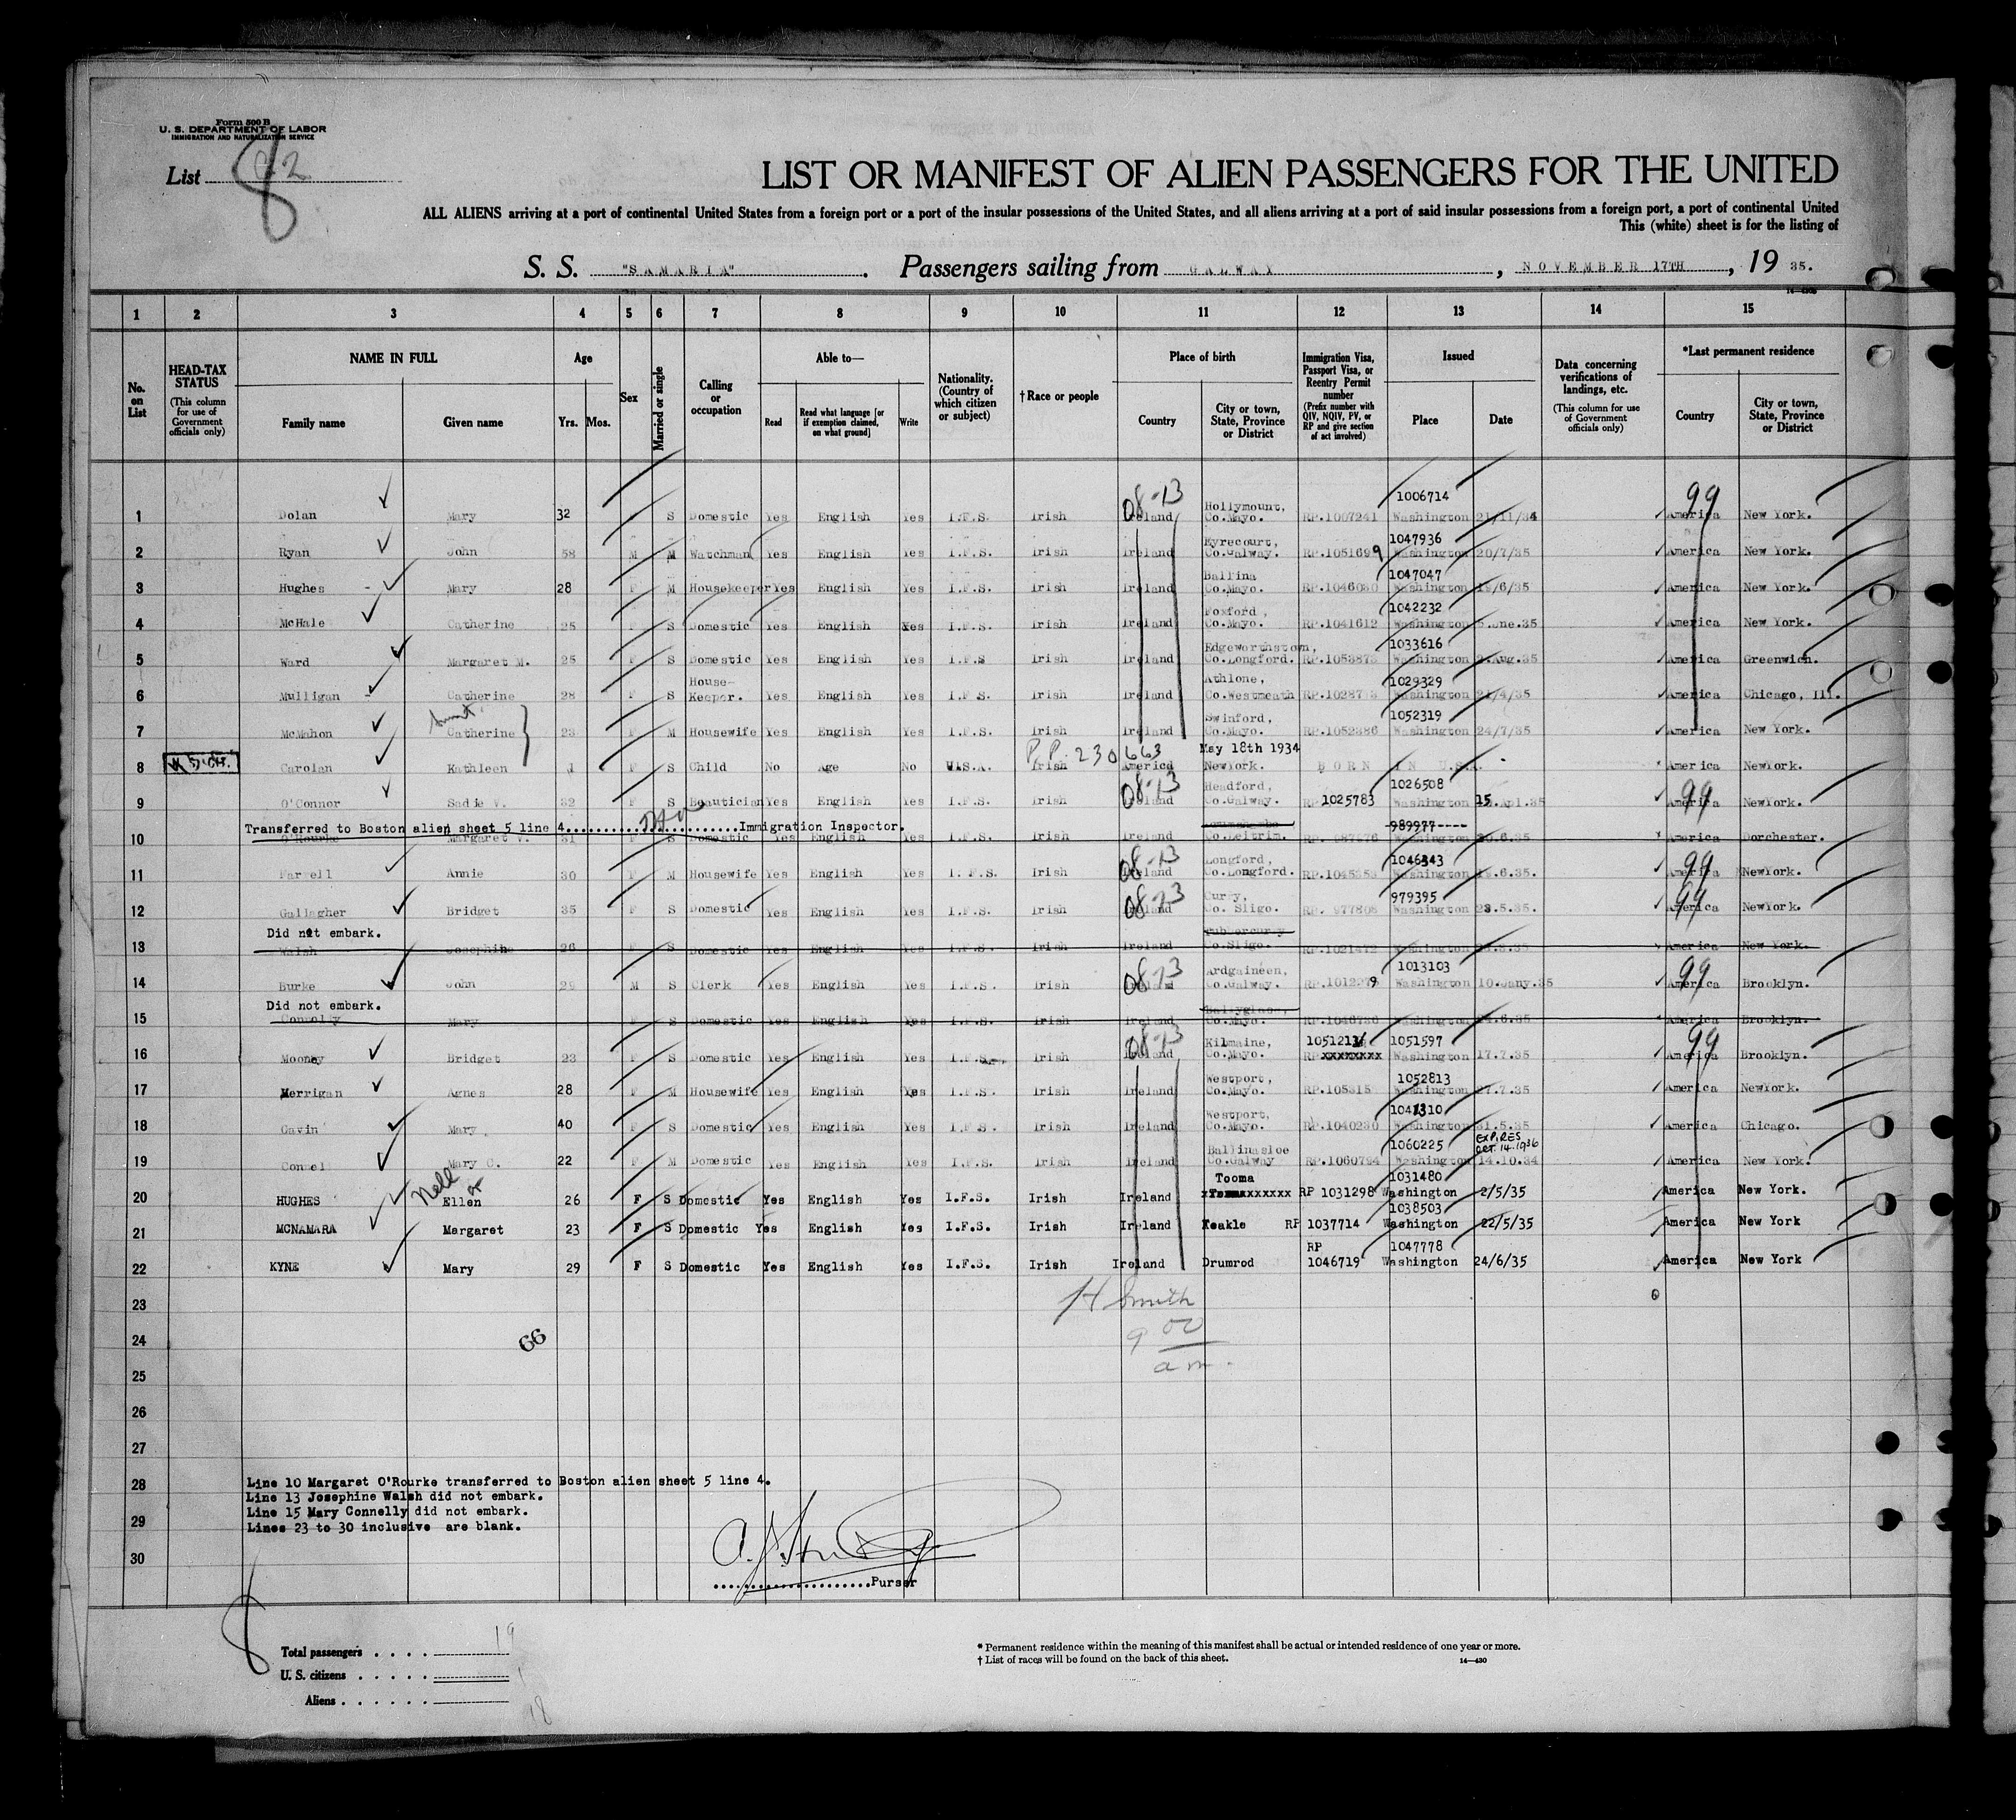 Form 500 B
U. S. DEPARTMENT OF LABOR
IMMIGRATION AND NATURALIZATION SERVICE
List 8
LIST OR MANIFEST OF ALIEN PASSENGERS FOR THE UNITED
ALL ALIENS arriving at a port of continental United States from a foreign port or a port of the insular possessions of the United States, and all aliens arriving at a port of said insular possessions from a foreign port, a port of continental United
This (white) sheet is for the listing of
S. S. "SAMARIA". Passengers sailing from GALWAY, NOVEMBER 17TH, 19 35.
1 2 3 4 5 6 7 8 9 10 11 12 13 14 15
No. on List
HEAD-TAX STATUS (This column for use of Government officials only)
NAME IN FULL Family name Given name
Age Yrs. Mos.
Sex
Married or single
Calling or occupation
Able to— Read Read what language [or if exemption claimed, on what ground] Write
Nationality. (Country of which citizen or subject)
†Race or people
Place of birth Country City or town, State, Province or District
Immigration Visa, Passport Visa, or Reentry Permit number (Prefix number with QIV, NQIV, PV, or RP and give section of act involved)
Issued Place Date
Data concerning verifications of landings, etc. (This column for use of Government officials only)
*Last permanent residence Country City or town, State, Province or District
1 Dolan Mary 32 S Domestic Yes English Yes I.F.S. Irish 08-13 Ireland Hollymount, Co.Mayo. RP.1007241 1006714 Washington 21/11/34 99 America New York.
2 Ryan John 58 M M Watchman Yes English Yes I.F.S. Irish Ireland Eyrecourt, Co.Galway. RP.1051699 1047936 Washington 20/7/35 America New York.
3 Hughes Mary 28 F M Housekeeper Yes English Yes I.F.S. Irish Ireland Ballina Co.Mayo. 1047047 Washington 19/6/35 America New York.
4 McHale Catherine 25 F S Domestic Yes English Yes I.F.S. Irish Ireland Foxford, Co.Mayo. RP.1041612 1042232 Washington 5.June.35 America New York.
5 Ward Margaret M. 25 F S Domestic Yes English Yes I.F.S Irish Ireland Edgeworthstown, Co.Longford. 1033616 Washington Aug.35 America Greenwich.
6 Mulligan Catherine 28 F S House-Keeper. Yes English Yes I.F.S. Irish Ireland Athlone, Co.Westmeath 1029329 Washington 24/4/35 America Chicago, Ill.
7 McMahon Aunt. Catherine 23 F M Housewife Yes English Yes I.F.S. Irish Ireland Swinford, Co.Mayo. RP.1052386 1052319 Washington 24/7/35 America New York.
8 Carolan Kathleen 1 F S Child No Age No U.S.A. P.P. 230663 Irish America May 18th 1934 NewYork. BORN IN U.S.A. America NewYork.
9 O'Connor Sadie V. 32 F S Beautician Yes English Yes I.F.S. Irish 08-13 Ireland Headford, Co.Galway. RP 1025783 1026508 Washington 15.Apl.35 99 America NewYork.
Transferred to Boston alien sheet 5 line 4..................Immigration Inspector.
10 O'Rourke Margaret V. 31 F S Domestic Yes English Yes I.F.S. Irish Ireland Co.Leitrim. 989977---- Washington America Dorchester.
11 Farrell Annie 30 F M Housewife Yes English Yes I.F.S. Irish 08-13 Ireland Longford, Co.Longford. 1046343 Washington 99 America NewYork.
12 Gallagher Bridget 35 F S Domestic Yes English Yes I.F.S. Irish 08-13 Ireland Curry, Co. Sligo. 979395 Washington 28.5.35. 99 America NewYork.
Did not embark.
13 Walsh Josephine 26 F S Domestic Yes English Yes I.F.S. Irish Ireland Tubbercurry Co.Sligo. Washington America New York.
14 Burke John 29 M S Clerk Yes English Yes I.F.S. Irish 08-13 Ireland Ardgaineen, Co.Galway. 1013103 Washington 10.Jany.35 99 America Brooklyn.
Did not embark.
15 Connolly Mary F S Domestic Yes English Yes I.F.S. Irish Ireland Ballyglass, Co.Mayo. Washington America Brooklyn.
16 Mooney Bridget 23 F S Domestic Yes English Yes I.F.S. Irish 08-13 Ireland Kilmaine, Co.Mayo. RP xxxxxxxx 1051597 Washington 17.7.35 99 America Brooklyn.
17 Merrigan Agnes 28 F M Housewife Yes English Yes I.F.S. Irish Ireland Westport, Co.Mayo. 1052813 Washington 27.7.35 America NewYork.
18 Gavin Mary 40 F S Domestic Yes English Yes I.F.S. Irish Ireland Westport, Co.Mayo. RP.1040230 1041310 Washington 31.5.35 America Chicago.
19 Connel Mary C. 22 F M Domestic Yes English Yes I.F.S. Irish Ireland Ballinasloe Co.Galway RP.1060794 1060225 Washington EXPIRES OCT. 14. 1936 14.10.34 America New York.
20 HUGHES Nell or Ellen 26 F S Domestic Yes English Yes I.F.S. Irish Ireland Tooma RP 1031298 1031480 Washington 2/5/35 America New York.
21 MCNAMARA Margaret 23 F S Domestic Yes English Yes I.F.S. Irish Ireland Keakle RP 1037714 1038503 Washington 22/5/35 America New York
22 KYNE Mary 29 F S Domestic Yes English Yes I.F.S. Irish Ireland Drumrod RP 1046719 1047778 Washington 24/6/35 America New York
23 H Smith
24 66 9 00
25 a m.
26
27
28 Line 10 Margaret O'Rourke transferred to Boston alien sheet 5 line 4.
Line 13 Josephine Walsh did not embark.
29 Line 15 Mary Connelly did not embark.
Lines 23 to 30 inclusive are blank.
30
......................Purser
8
Total passengers . . . . 19
U. S. citizens . . . . . 1
Aliens . . . . . . 18
* Permanent residence within the meaning of this manifest shall be actual or intended residence of one year or more.
† List of races will be found on the back of this sheet.
14—430